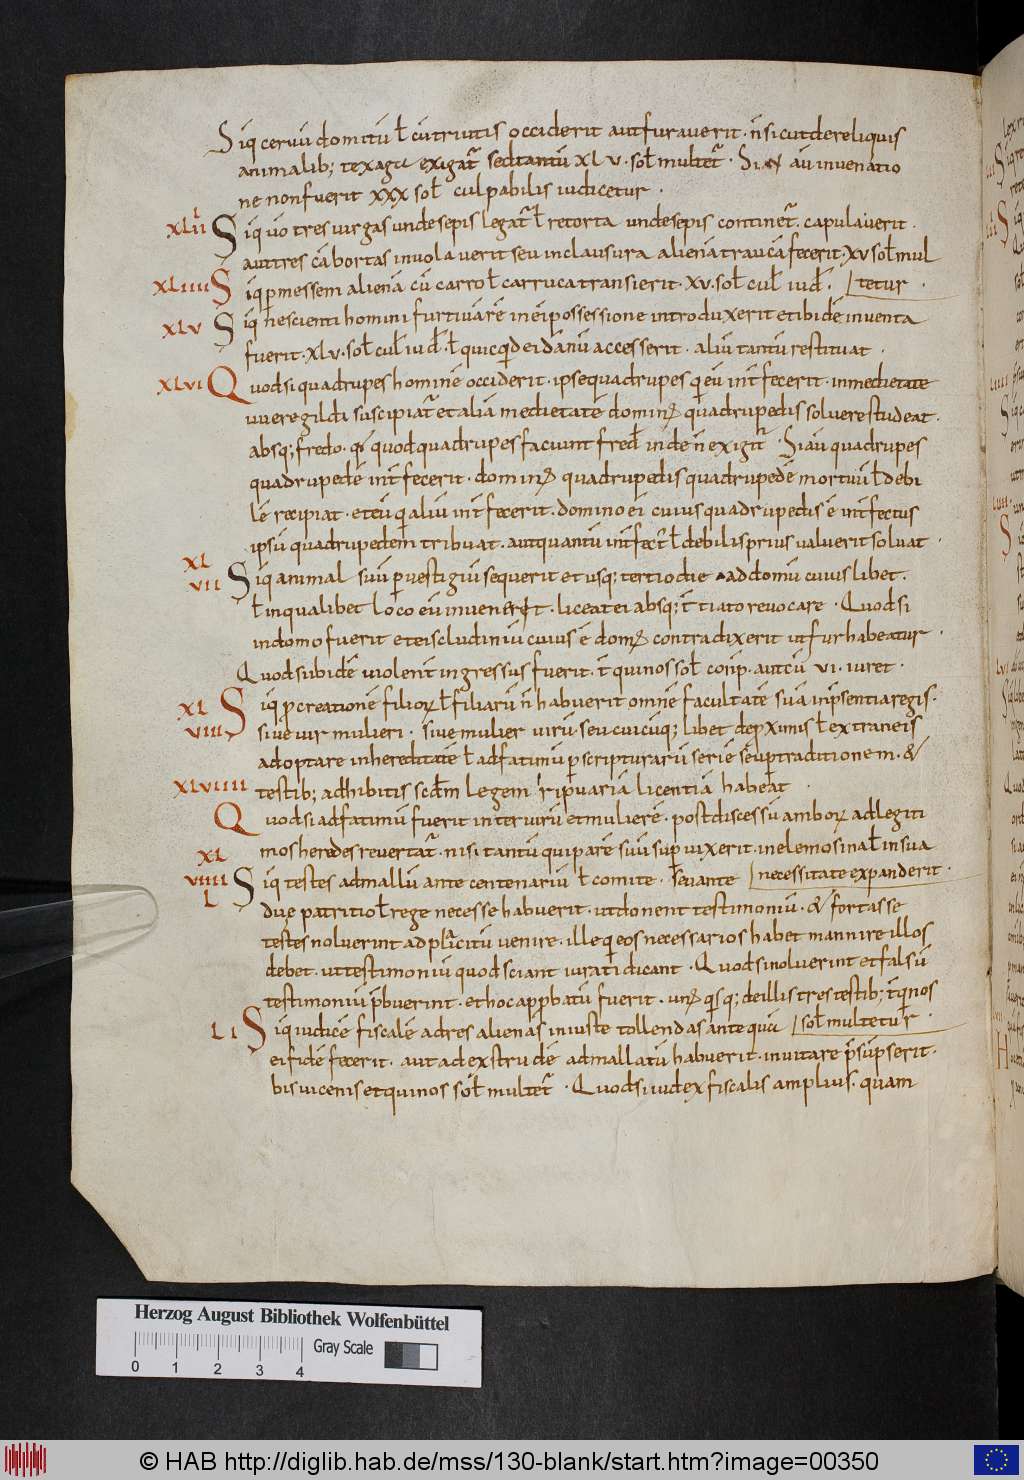 Siq̄ ceruū domitū ł cū triutis occiderit aut furauerit · n̄ sicut de reliquis
animalib; texaga exigat̄ sed tantū XLV · soł multet̄ · Si aū in uenatio
ne non fuerit XXX soł culpabilis iudicetur ·
XLIII Siq̄ uo tres uirgas unde sepis legat̄ ł retorta unde sepis continet̄ · capulauerit ·
aut tres cābortas inuolauerit seu in clausura alienā trauca fecerit · XV soł mul
XLIIII Siq̄ p messem alienā cū carro ł carruca transierit · XV · soł cuł iud · tetur ·
XLV Siq̄ nescienti homini furtiuā rē in ei possessione introduxerit et ibidē inuenta
fuerit · XLV · soł cuł iud · ł quicqd ei dānū accesserit · aliū tantū restituat ·
XLVI Quod si quadrupes hominē occiderit · ipse quadrupes q eū interfecerit · in medietate
uueregildi suscipiat̄ et aliā medietatē domin quadrupedis soluere studeat ·
absq; fredo · qi quod quadrupes faciunt fred inde n̄ exigit̄ · Si aū quadrupes
quadrupedē interfecerit · domin quadrupedis quadrupedē mortuū ł debi
lē recipiat · et eū q aliū interfecerit · domino ei cuius quadrupedis ē interfectus
ipsū quadrupedem tribuat · aut quantū infect ł debilis prius ualuerit soluat ·
XLVII Siq̄ animal suū p uestigiū sequerit et usq; tertio die ad domū cuiuslibet ·
ł in qualibet loco eū inuenerit · liceat ei absq; īttiato reuocare · Quod si
in domo fuerit et ei scludiniū cuius ē dom contradixerit ut fur habeatur ·
Quod si ibidē uiolent ingressus fuerit · t quinos soł conp · aut cū VI · iuret ·
XLVIII Siq̄ pcreationē filior ł filiarū n̄ habuerit omnē facultatē suā in psentia regis ·
siue uir mulieri · siue mulier uirū · seu cuicūq; libet de pximis ł extraneis
adoptare in hereditatē ł adfatimū p scripturarū seriē seu p traditione m · &
XLVIIII testib; adhibitis scdm legem ripuariā licentiā habeat
Quod si adfatimū fuerit inter uirū et mulierē · post discessū ambor ad legiti
mos heredes reuertat̄ · nisi tantū qui parē suū supuixerit · in elemosina ł in sua
XLVIIII Siq̄ testes ad mallū ante centenariū ł comite · seu ante necessitate expanderit ·
L due patritio ł rege necesse habuerit · ut donent testimoniū · & fortasse
testes noluerint ad placitū uenire · ille q eos necessarios habet mannire illos
debet · ut testimoniū quod sciant iurati dicant · Quod si noluerint et falsū
testimoniū pbuerint · et hoc adpbatū fuerit · un qsq; de illis tres testib; t qnos
LI Siq̄ iudicē fiscalē ad res alienas iniuste tollendas ante quā soł multetur ·
ei fidē fecerit · aut ad extrudē ad mallatū habuerit · inuitare psupserit ·
bis uicenis et quinos soł multet̄ · Quod si iudex fiscalis amplius · quam
Herzog August Bibliothek Wolfenbüttel
Gray Scale
0 1 2 3 4
© HAB http://diglib.hab.de/mss/130-blank/start.htm?image=00350